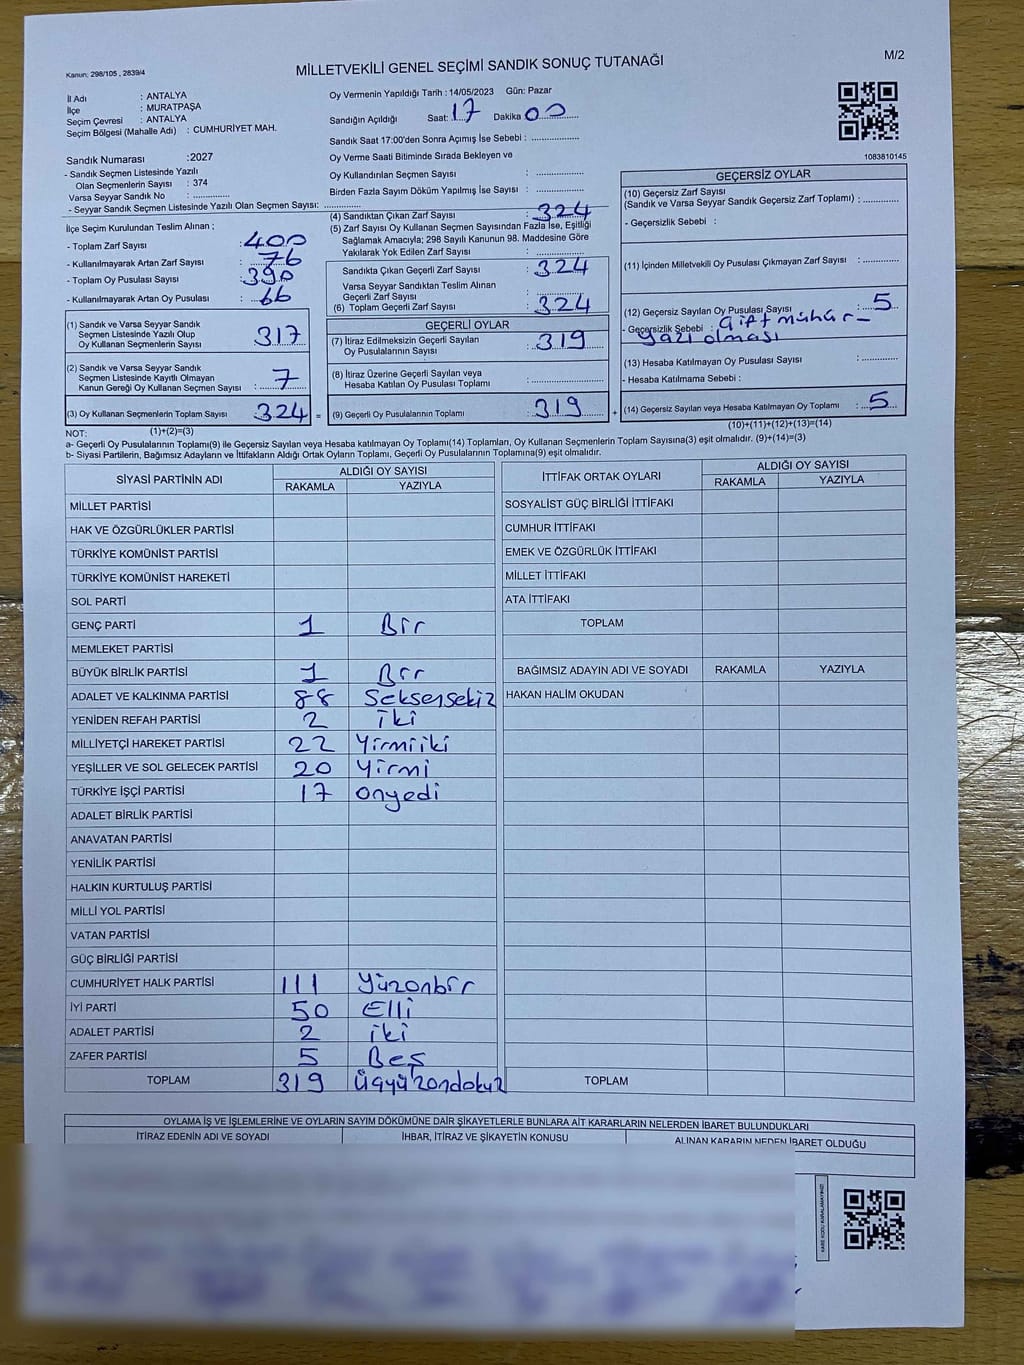 M/2
Kanun: 298/105 , 2839/4
MİLLETVEKİLİ GENEL SEÇİMİ SANDIK SONUÇ TUTANAĞI
İl Adı : ANTALYA
İlçe : MURATPAŞA
Seçim Çevresi : ANTALYA
Seçim Bölgesi (Mahalle Adı) : CUMHURİYET MAH.
Oy Vermenin Yapıldığı Tarih : 14/05/2023 Gün: Pazar
Sandığın Açıldığı Saat: 17 Dakika 00
Sandık Saat 17:00'den Sonra Açımış İse Sebebi : ................
Sandık Numarası :2027
- Sandık Seçmen Listesinde Yazılı
Olan Seçmenlerin Sayısı : 374
Varsa Seyyar Sandık No : ................
- Seyyar Sandık Seçmen Listesinde Yazılı Olan Seçmen Sayısı: ................
Oy Verme Saati Bitiminde Sırada Bekleyen ve
Oy Kullandırılan Seçmen Sayısı : ................
Birden Fazla Sayım Döküm Yapılmış İse Sayısı : ................
1083810145
İlçe Seçim Kurulundan Teslim Alınan ;
- Toplam Zarf Sayısı : 400
- Kullanılmayarak Artan Zarf Sayısı : 76
- Toplam Oy Pusulası Sayısı : 390
- Kullanılmayarak Artan Oy Pusulası : 66
(1) Sandık ve Varsa Seyyar Sandık
Seçmen Listesinde Yazılı Olup
Oy Kullanan Seçmenlerin Sayısı : 317
(2) Sandık ve Varsa Seyyar Sandık
Seçmen Listesinde Kayıtlı Olmayan
Kanun Gereği Oy Kullanan Seçmen Sayısı : 7
(3) Oy Kullanan Seçmenlerin Toplam Sayısı : 324 =
(1)+(2)=(3)
(4) Sandıktan Çıkan Zarf Sayısı : 324
(5) Zarf Sayısı Oy Kullanan Seçmen Sayısından Fazla İse, Eşitliği
Sağlamak Amacıyla; 298 Sayılı Kanunun 98. Maddesine Göre
Yakılarak Yok Edilen Zarf Sayısı : ................
Sandıkta Çıkan Geçerli Zarf Sayısı : 324
Varsa Seyyar Sandıktan Teslim Alınan
Geçerli Zarf Sayısı : ................
(6) Toplam Geçerli Zarf Sayısı : 324
GEÇERLİ OYLAR
(7) İtiraz Edilmeksizin Geçerli Sayılan
Oy Pusulalarının Sayısı : 319
(8) İtiraz Üzerine Geçerli Sayılan veya
Hesaba Katılan Oy Pusulası Toplamı : ................
(9) Geçerli Oy Pusulalarının Toplamı : 319 +
GEÇERSİZ OYLAR
(10) Geçersiz Zarf Sayısı
(Sandık ve Varsa Seyyar Sandık Geçersiz Zarf Toplamı) : ............
- Geçersizlik Sebebi :
(11) İçinden Milletvekili Oy Pusulası Çıkmayan Zarf Sayısı : ............
(12) Geçersiz Sayılan Oy Pusulası Sayısı : 5
- Geçersizlik Sebebi : Çift mühür -
yazı olması
(13) Hesaba Katılmayan Oy Pusulası Sayısı : ............
- Hesaba Katılmama Sebebi :
(14) Geçersiz Sayılan veya Hesaba Katılmayan Oy Toplamı : 5
(10)+(11)+(12)+(13)=(14)
NOT:
a- Geçerli Oy Pusulalarının Toplamı(9) ile Geçersiz Sayılan veya Hesaba katılmayan Oy Toplamı(14) Toplamları, Oy Kullanan Seçmenlerin Toplam Sayısına(3) eşit olmalıdır. (9)+(14)=(3)
b- Siyasi Partilerin, Bağımsız Adayların ve İttifakların Aldığı Ortak Oyların Toplamı, Geçerli Oy Pusulalarının Toplamına(9) eşit olmalıdır.
SİYASİ PARTİNİN ADI ALDIĞI OY SAYISI
RAKAMLA YAZIYLA
MİLLET PARTİSİ
HAK VE ÖZGÜRLÜKLER PARTİSİ
TÜRKİYE KOMÜNİST PARTİSİ
TÜRKİYE KOMÜNİST HAREKETİ
SOL PARTİ
GENÇ PARTİ 1 Bir
MEMLEKET PARTİSİ
BÜYÜK BİRLİK PARTİSİ 1 Bir
ADALET VE KALKINMA PARTİSİ 88 Seksensekiz
YENİDEN REFAH PARTİSİ 2 iki
MİLLİYETÇİ HAREKET PARTİSİ 22 Yirmiiki
YEŞİLLER VE SOL GELECEK PARTİSİ 20 Yirmi
TÜRKİYE İŞÇİ PARTİSİ 17 onyedi
ADALET BİRLİK PARTİSİ
ANAVATAN PARTİSİ
YENİLİK PARTİSİ
HALKIN KURTULUŞ PARTİSİ
MİLLİ YOL PARTİSİ
VATAN PARTİSİ
GÜÇ BİRLİĞİ PARTİSİ
CUMHURİYET HALK PARTİSİ 111 Yüzonbir
İYİ PARTİ 50 Elli
ADALET PARTİSİ 2 iki
ZAFER PARTİSİ 5 Beş
TOPLAM 319 Üçyüzondokuz
İTTİFAK ORTAK OYLARI ALDIĞI OY SAYISI
RAKAMLA YAZIYLA
SOSYALİST GÜÇ BİRLİĞİ İTTİFAKI
CUMHUR İTTİFAKI
EMEK VE ÖZGÜRLÜK İTTİFAKI
MİLLET İTTİFAKI
ATA İTTİFAKI
TOPLAM
BAĞIMSIZ ADAYIN ADI VE SOYADI RAKAMLA YAZIYLA
HAKAN HALİM OKUDAN
TOPLAM
OYLAMA İŞ VE İŞLEMLERİNE VE OYLARIN SAYIM DÖKÜMÜNE DAİR ŞİKAYETLERLE BUNLARA AİT KARARLARIN NELERDEN İBARET BULUNDUKLARI
İTİRAZ EDENİN ADI VE SOYADI İHBAR, İTİRAZ VE ŞİKAYETİN KONUSU ALINAN KARARIN NEDEN İBARET OLDUĞU
KARE KODU KARALAMAYINIZ!